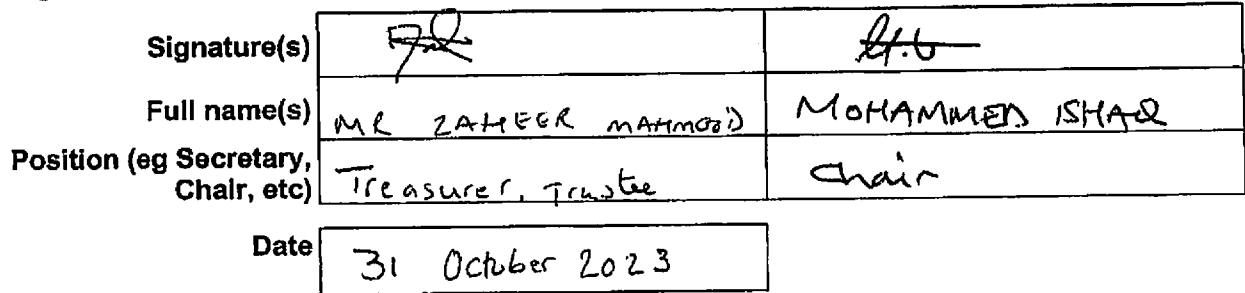 Signature(s)
Full name(s) MR ZAHEER MAHMOOD MOHAMMED ISHAQ
Position (eg Secretary,
Chair, etc) Treasurer, Trustee Chair
Date 31 October 2023